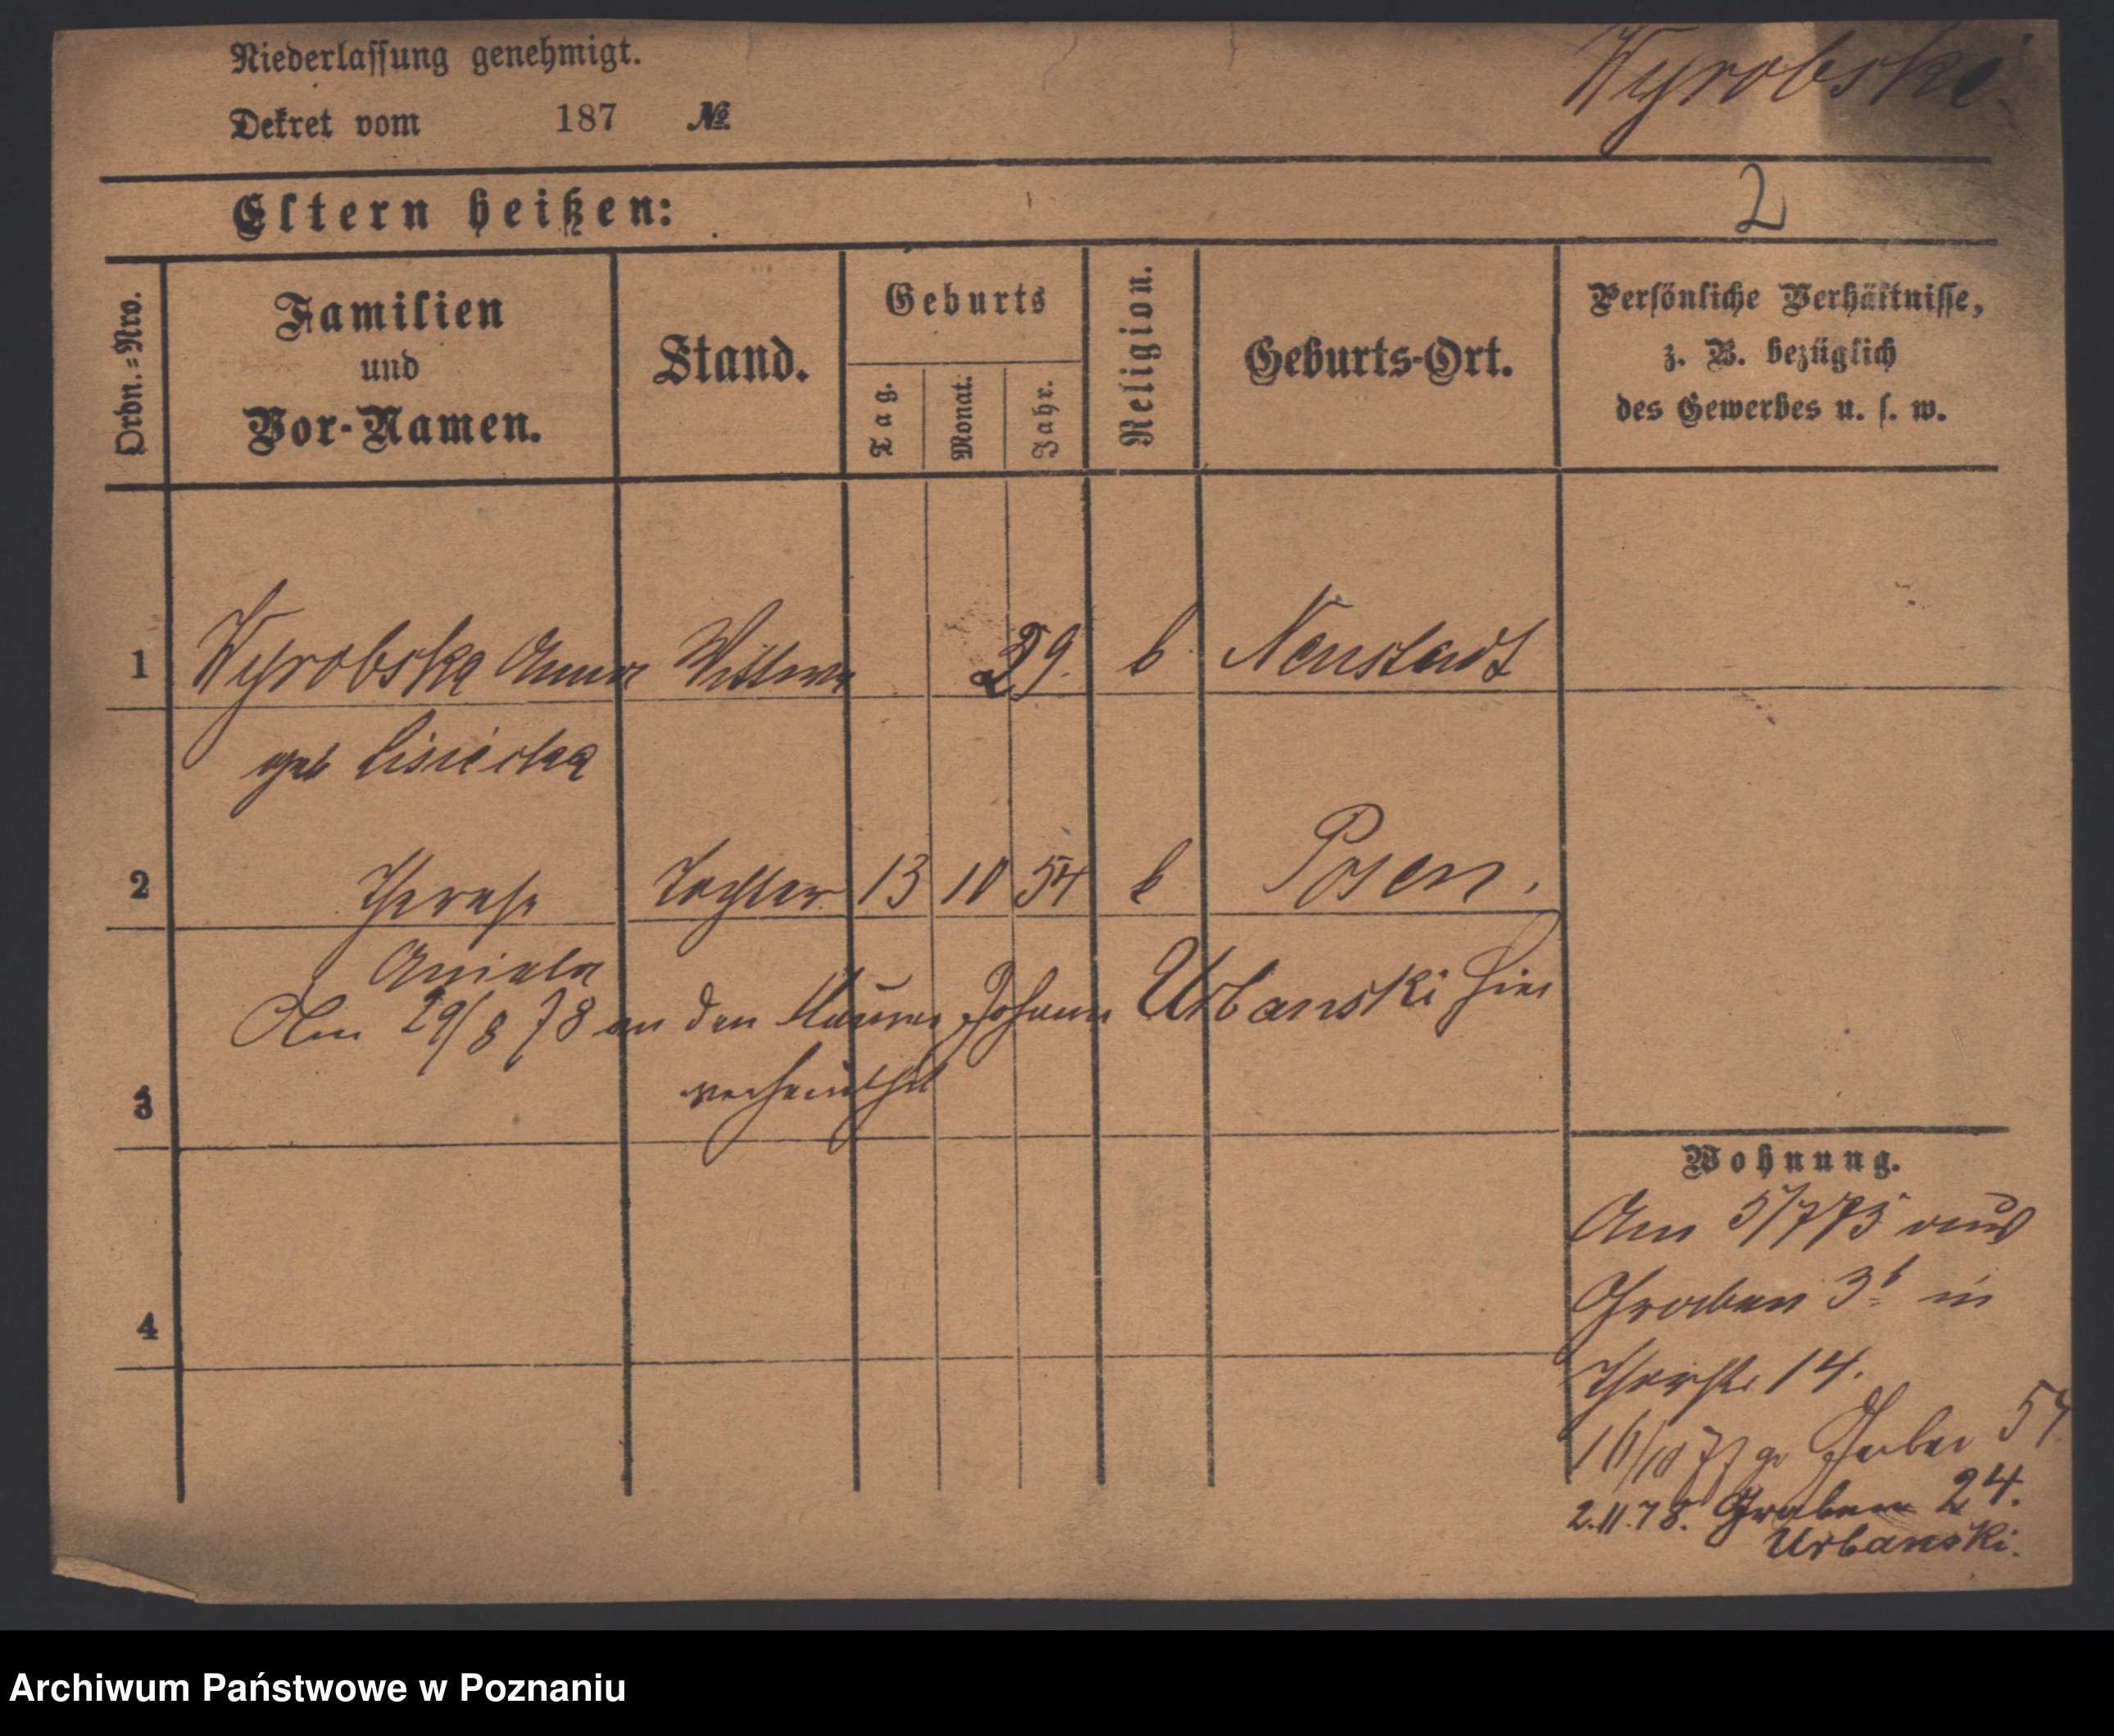 Niederlassung genehmigt.
Wyrobski.
Dekret vom 187 №
Eltern heißen:
2
Ordn.=Nro.
Familien
und
Vor-Namen.
Stand.
Geburts
Tag.
Monat.
Jahr.
Religion.
Geburts-Ort.
Persönliche Verhältnisse,
z. B. bezüglich
des Gewerbes u. s. w.
1 Wyrobska Anna Wittwe 29. k Neustadt
geb
2 Therese Tochter 13 10 54 k Posen.
Aniela
Am 29/8 78 an den Maurer Johann Urbanski hier
verheirathet
3
4
Wohnung.
Am 5/7 75 aus
Graben 3b in
14.
16/10 77 gr Gerber 54
2.11.78. Graben 24.
Urbanski.
Archiwum Państwowe w Poznaniu